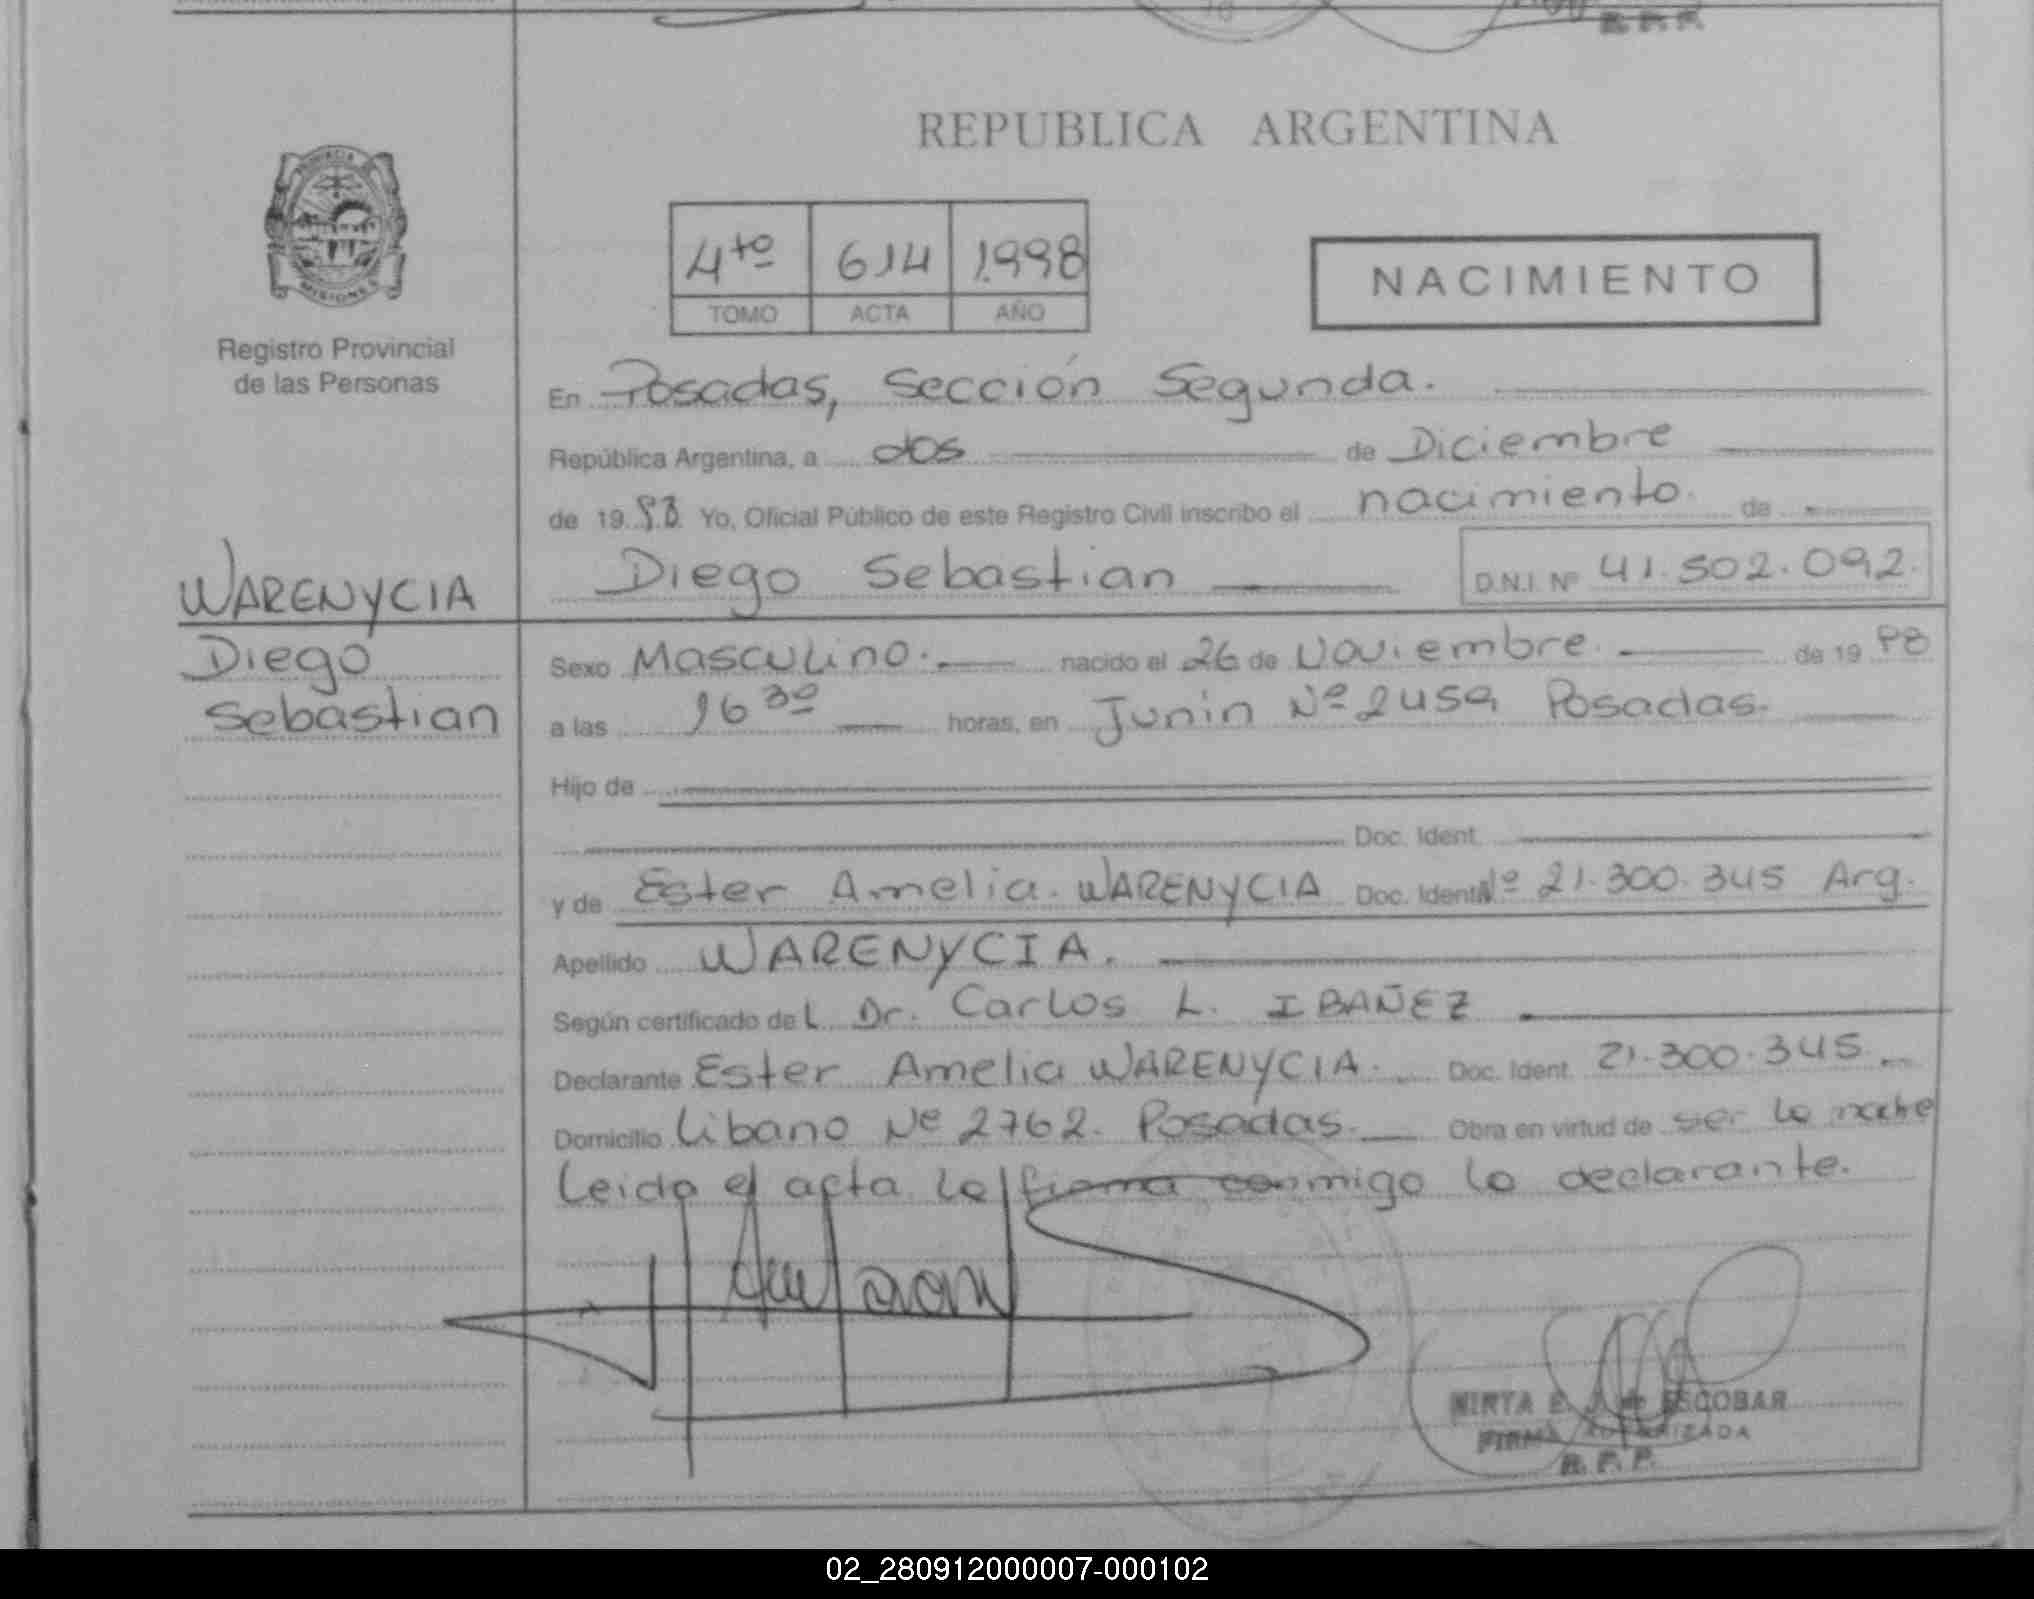 R.P.P.
REPUBLICA ARGENTINA
PROVINCIA
MISIONES
4to 614 1.998
TOMO ACTA AÑO
NACIMIENTO
Registro Provincial
de las Personas
En Posadas, Sección Segunda.
República Argentina, a dos de Diciembre
de 19 98 Yo, Oficial Público de este Registro Civil inscribo el nacimiento de
WARENYCIA
Diego Sebastian D.N.I. Nº 41.502.092.
Diego
Sebastian
Sexo Masculino. nacido el 26 de Noviembre. de 19 98
a las 16 30 horas, en Junin Nº 2459 Posadas.
Hijo de
Doc. Ident.
y de Ester Amelia. WARENYCIA Doc. Ident. Nº 21.300.345 Arg.
Apellido WARENYCIA.
Según certificado del Dr. Carlos L. IBAÑEZ
Declarante Ester Amelia WARENYCIA. Doc. Ident. 21.300.345.
Domicilio Libano Nº 2762. Posadas. Obra en virtud de ser la madre
Leida el acta la firma conmigo la declarante.
MIRTA E. de ESCOBAR
FIRMA AUTORIZADA
R.P.P.
02_280912000007-000102